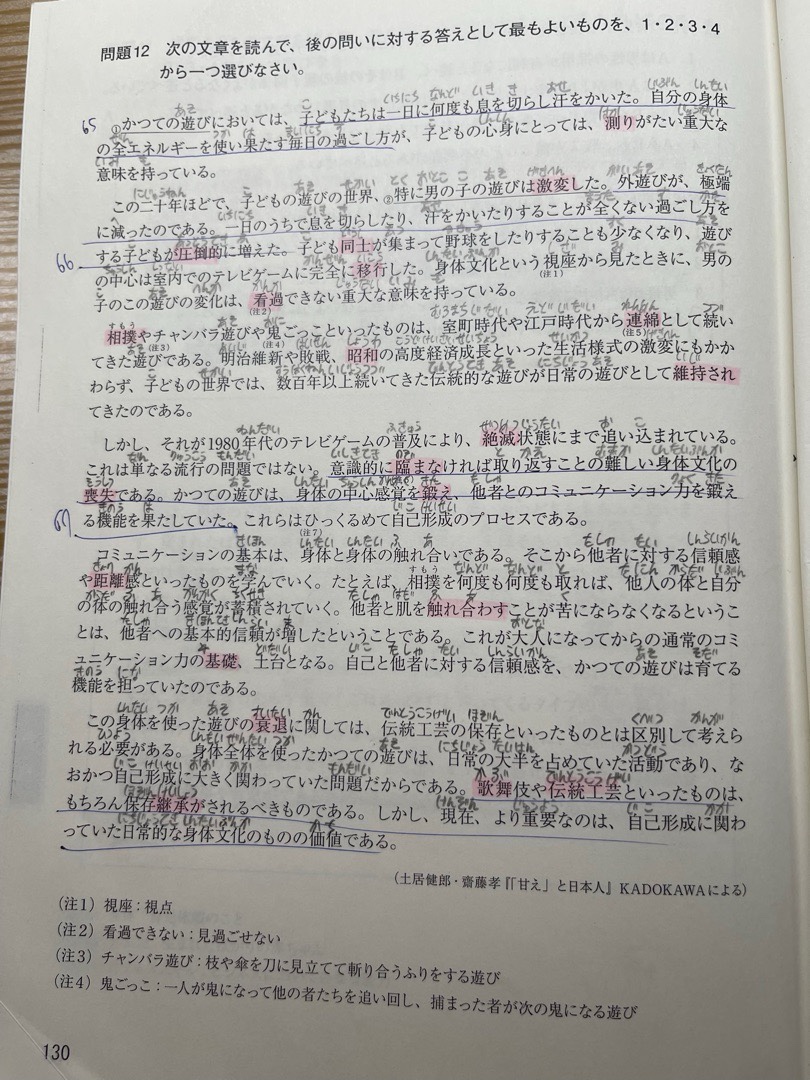 問題12 次の文章を読んで、後の問いに対する答えとして最もよいものを、1・2・3・4
から一つ選びなさい。
65 ①かつての遊びにおいては、子どもたちは一日に何度も息を切らし汗をかいた。自分の身体
の全エネルギーを使い果たす毎日の過ごし方が、子どもの心身にとっては、測りがたい重大な
意味を持っている。
この二十年ほどで、子どもの遊びの世界、②特に男の子の遊びは激変した。外遊びが、極端
に減ったのである。一日のうちで息を切らしたり、汗をかいたりすることが全くない過ごし方を
する子どもが圧倒的に増えた。子ども同士が集まって野球をしたりすることも少なくなり、遊び
66 の中心は室内でのテレビゲームに完全に移行した。身体文化という視座から見たときに、男の
(注1)
子のこの遊びの変化は、看過できない重大な意味を持っている。
(注2)
相撲やチャンバラ遊びや鬼ごっこといったものは、室町時代や江戸時代から連綿として続い
(注3) (注4) (注5)
てきた遊びである。明治維新や敗戦、昭和の高度経済成長といった生活様式の激変にもかか
わらず、子どもの世界では、数百年以上続いてきた伝統的な遊びが日常の遊びとして維持され
てきたのである。
しかし、それが1980年代のテレビゲームの普及により、絶滅状態にまで追い込まれている。
これは単なる流行の問題ではない。意識的に臨まなければ取り返すことの難しい身体文化の
喪失である。かつての遊びは、身体の中心感覚を鍛え、他者とのコミュニケーション力を鍛え
67 る機能を果たしていた。これらはひっくるめて自己形成のプロセスである。
(注7)
コミュニケーションの基本は、身体と身体の触れ合いである。そこから他者に対する信頼感
や距離感といったものを学んでいく。たとえば、相撲を何度も何度も取れば、他人の体と自分
の体の触れ合う感覚が蓄積されていく。他者と肌を触れ合わすことが苦にならなくなるというこ
とは、他者への基本的信頼が増したということである。これが大人になってからの通常のコミ
ュニケーション力の基礎、土台となる。自己と他者に対する信頼感を、かつての遊びは育てる
機能を担っていたのである。
この身体を使った遊びの衰退に関しては、伝統工芸の保存といったものとは区別して考えら
れる必要がある。身体全体を使ったかつての遊びは、日常の大半を占めていた活動であり、な
おかつ自己形成に大きく関わっていた問題だからである。歌舞伎や伝統工芸といったものは、
もちろん保存継承がされるべきものである。しかし、現在、より重要なのは、自己形成に関わ
っていた日常的な身体文化のものの価値である。
(土居健郎・齋藤孝『「甘え」と日本人』KADOKAWAによる)
(注1) 視座：視点
(注2) 看過できない：見過ごせない
(注3) チャンバラ遊び：枝や傘を刀に見立てて斬り合うふりをする遊び
(注4) 鬼ごっこ：一人が鬼になって他の者たちを追い回し、捕まった者が次の鬼になる遊び
130